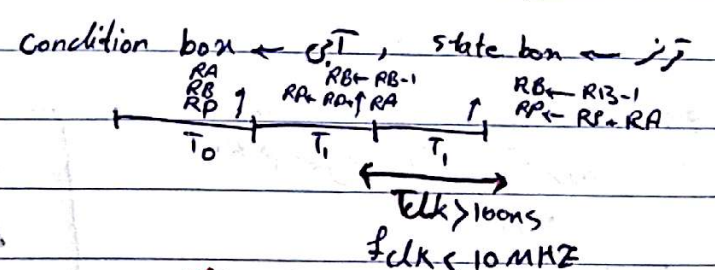 condition box ← آبی , state box ← قرمز
RA RB← RB-1
RB RP← RP+RA RB← RB-1
RP RP← RP+RA
T0 T1 T1
Tclk>100ns
fclk<10MHZ